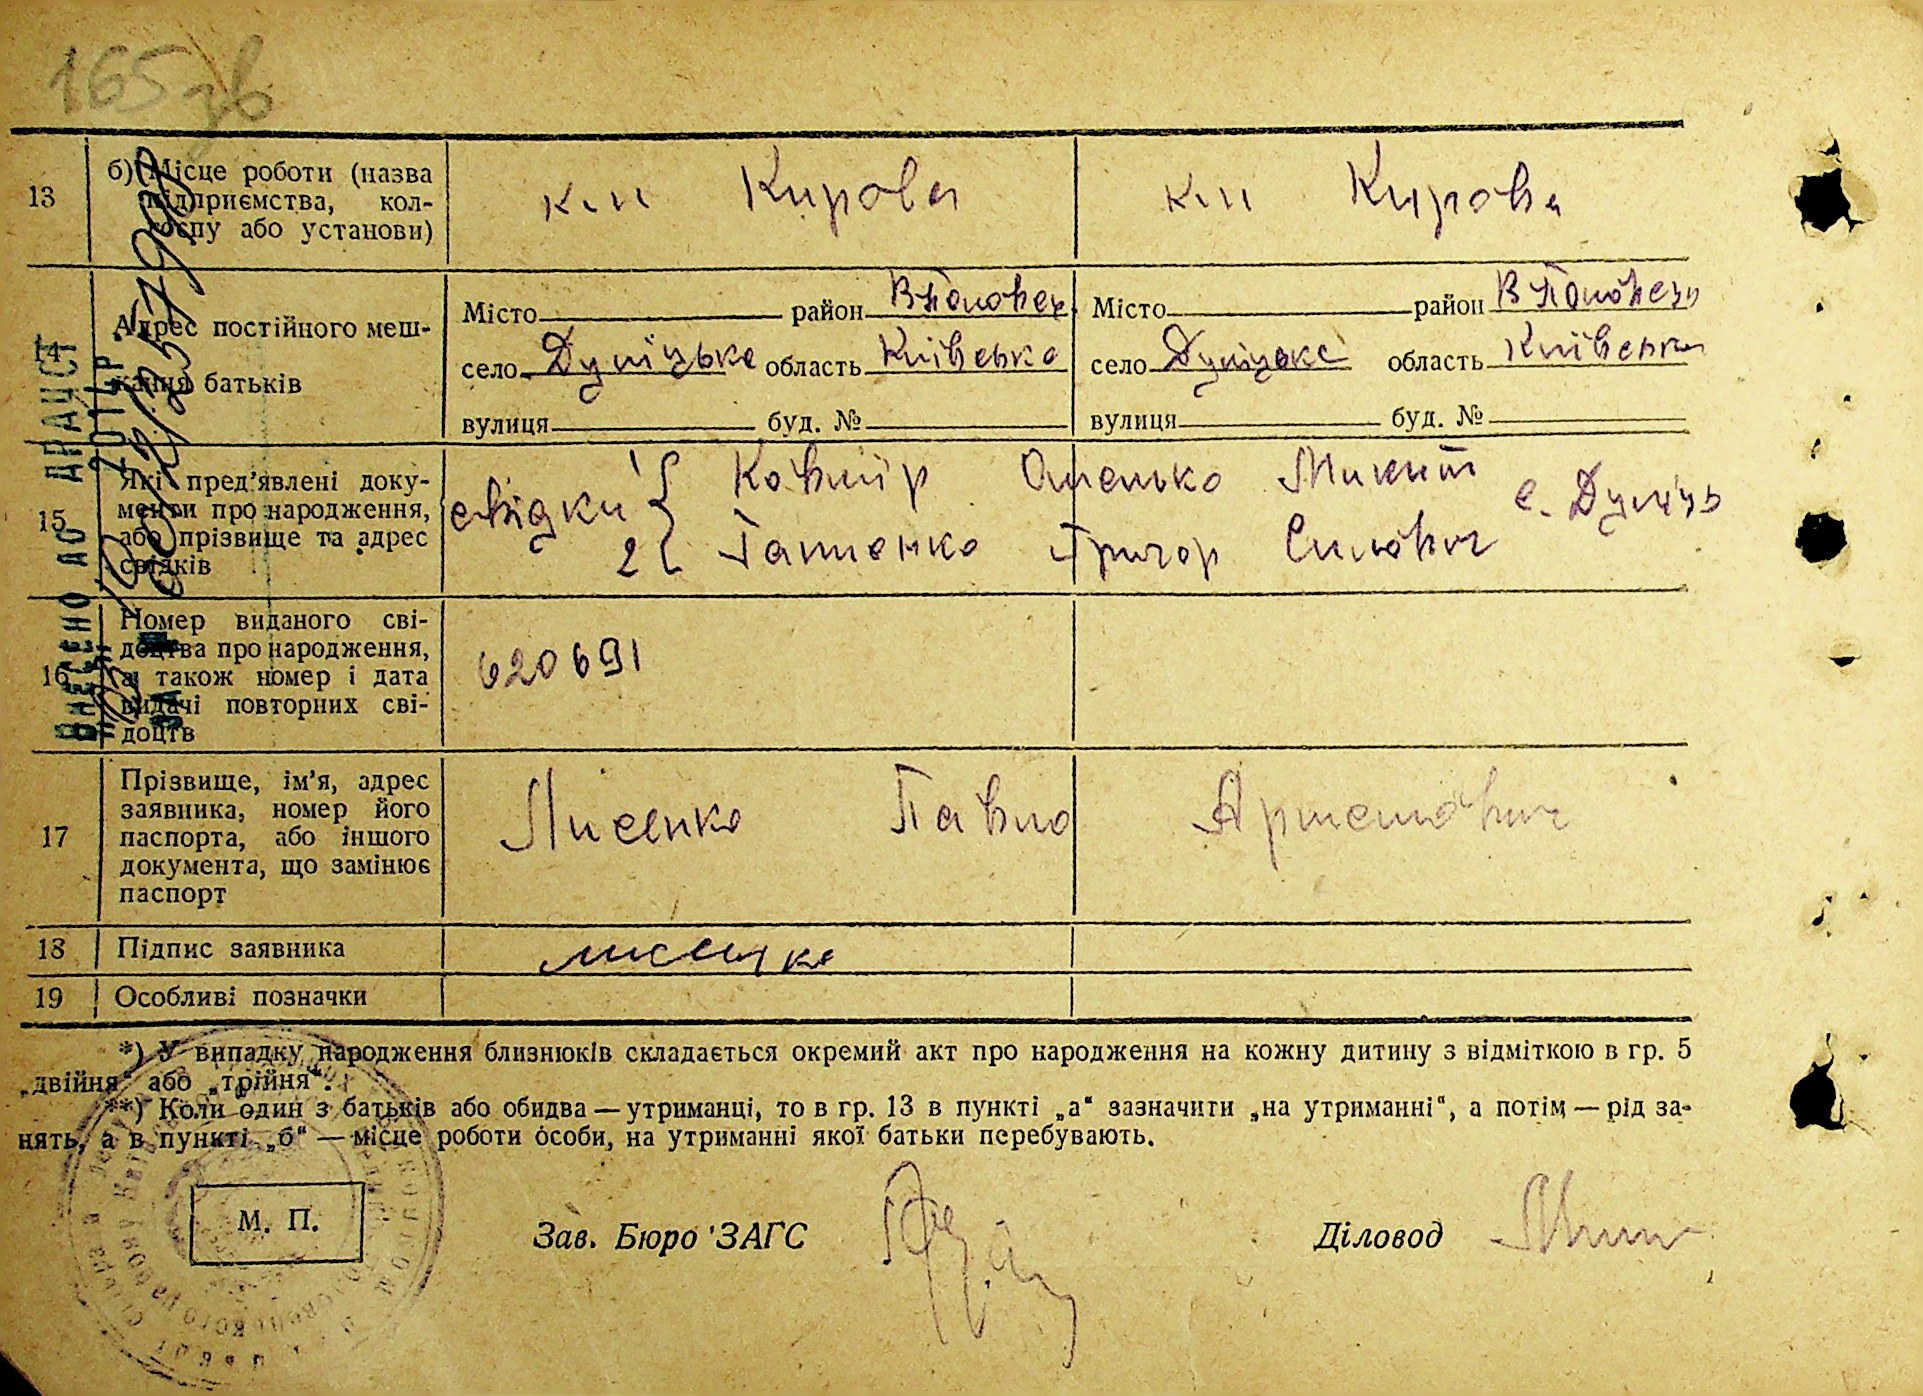 165 зв
13
б) Місце роботи (назва
підприємства, кол-
госпу або установи)
к-п Кирова
к-п Кирова
14
Адрес постійного меш-
кання батьків
Місто район В Половец.
село область Київська
вулиця буд. №
Місто район В Половець
село область Київська
вулиця буд. №
15
Які пред'явлені доку-
менти про народження,
або прізвище та адрес
свідків
свідки 1 Омелько Микит
2 Григор с.
16
Номер виданого сві-
доцтва про народження,
а також номер і дата
видачі повторних сві-
доцтв
620691
17
Прізвище, ім'я, адрес
заявника, номер його
паспорта, або іншого
документа, що замінює
паспорт
Лисенко Павло Артемович
18
Підпис заявника
лисенко
19
Особливі позначки
*) У випадку народження близнюків складається окремий акт про народження на кожну дитину з відміткою в гр. 5
„двійня" або „трійня".
**) Коли один з батьків або обидва — утриманці, то в гр. 13 в пункті „а" зазначити „на утриманні", а потім — рід за-
нять, а в пункті „б" — місце роботи особи, на утриманні якої батьки перебувають.
М. П.
Зав. Бюро ЗАГС
Діловод
ВНЕСЕНО ДО ДРАЦСГ